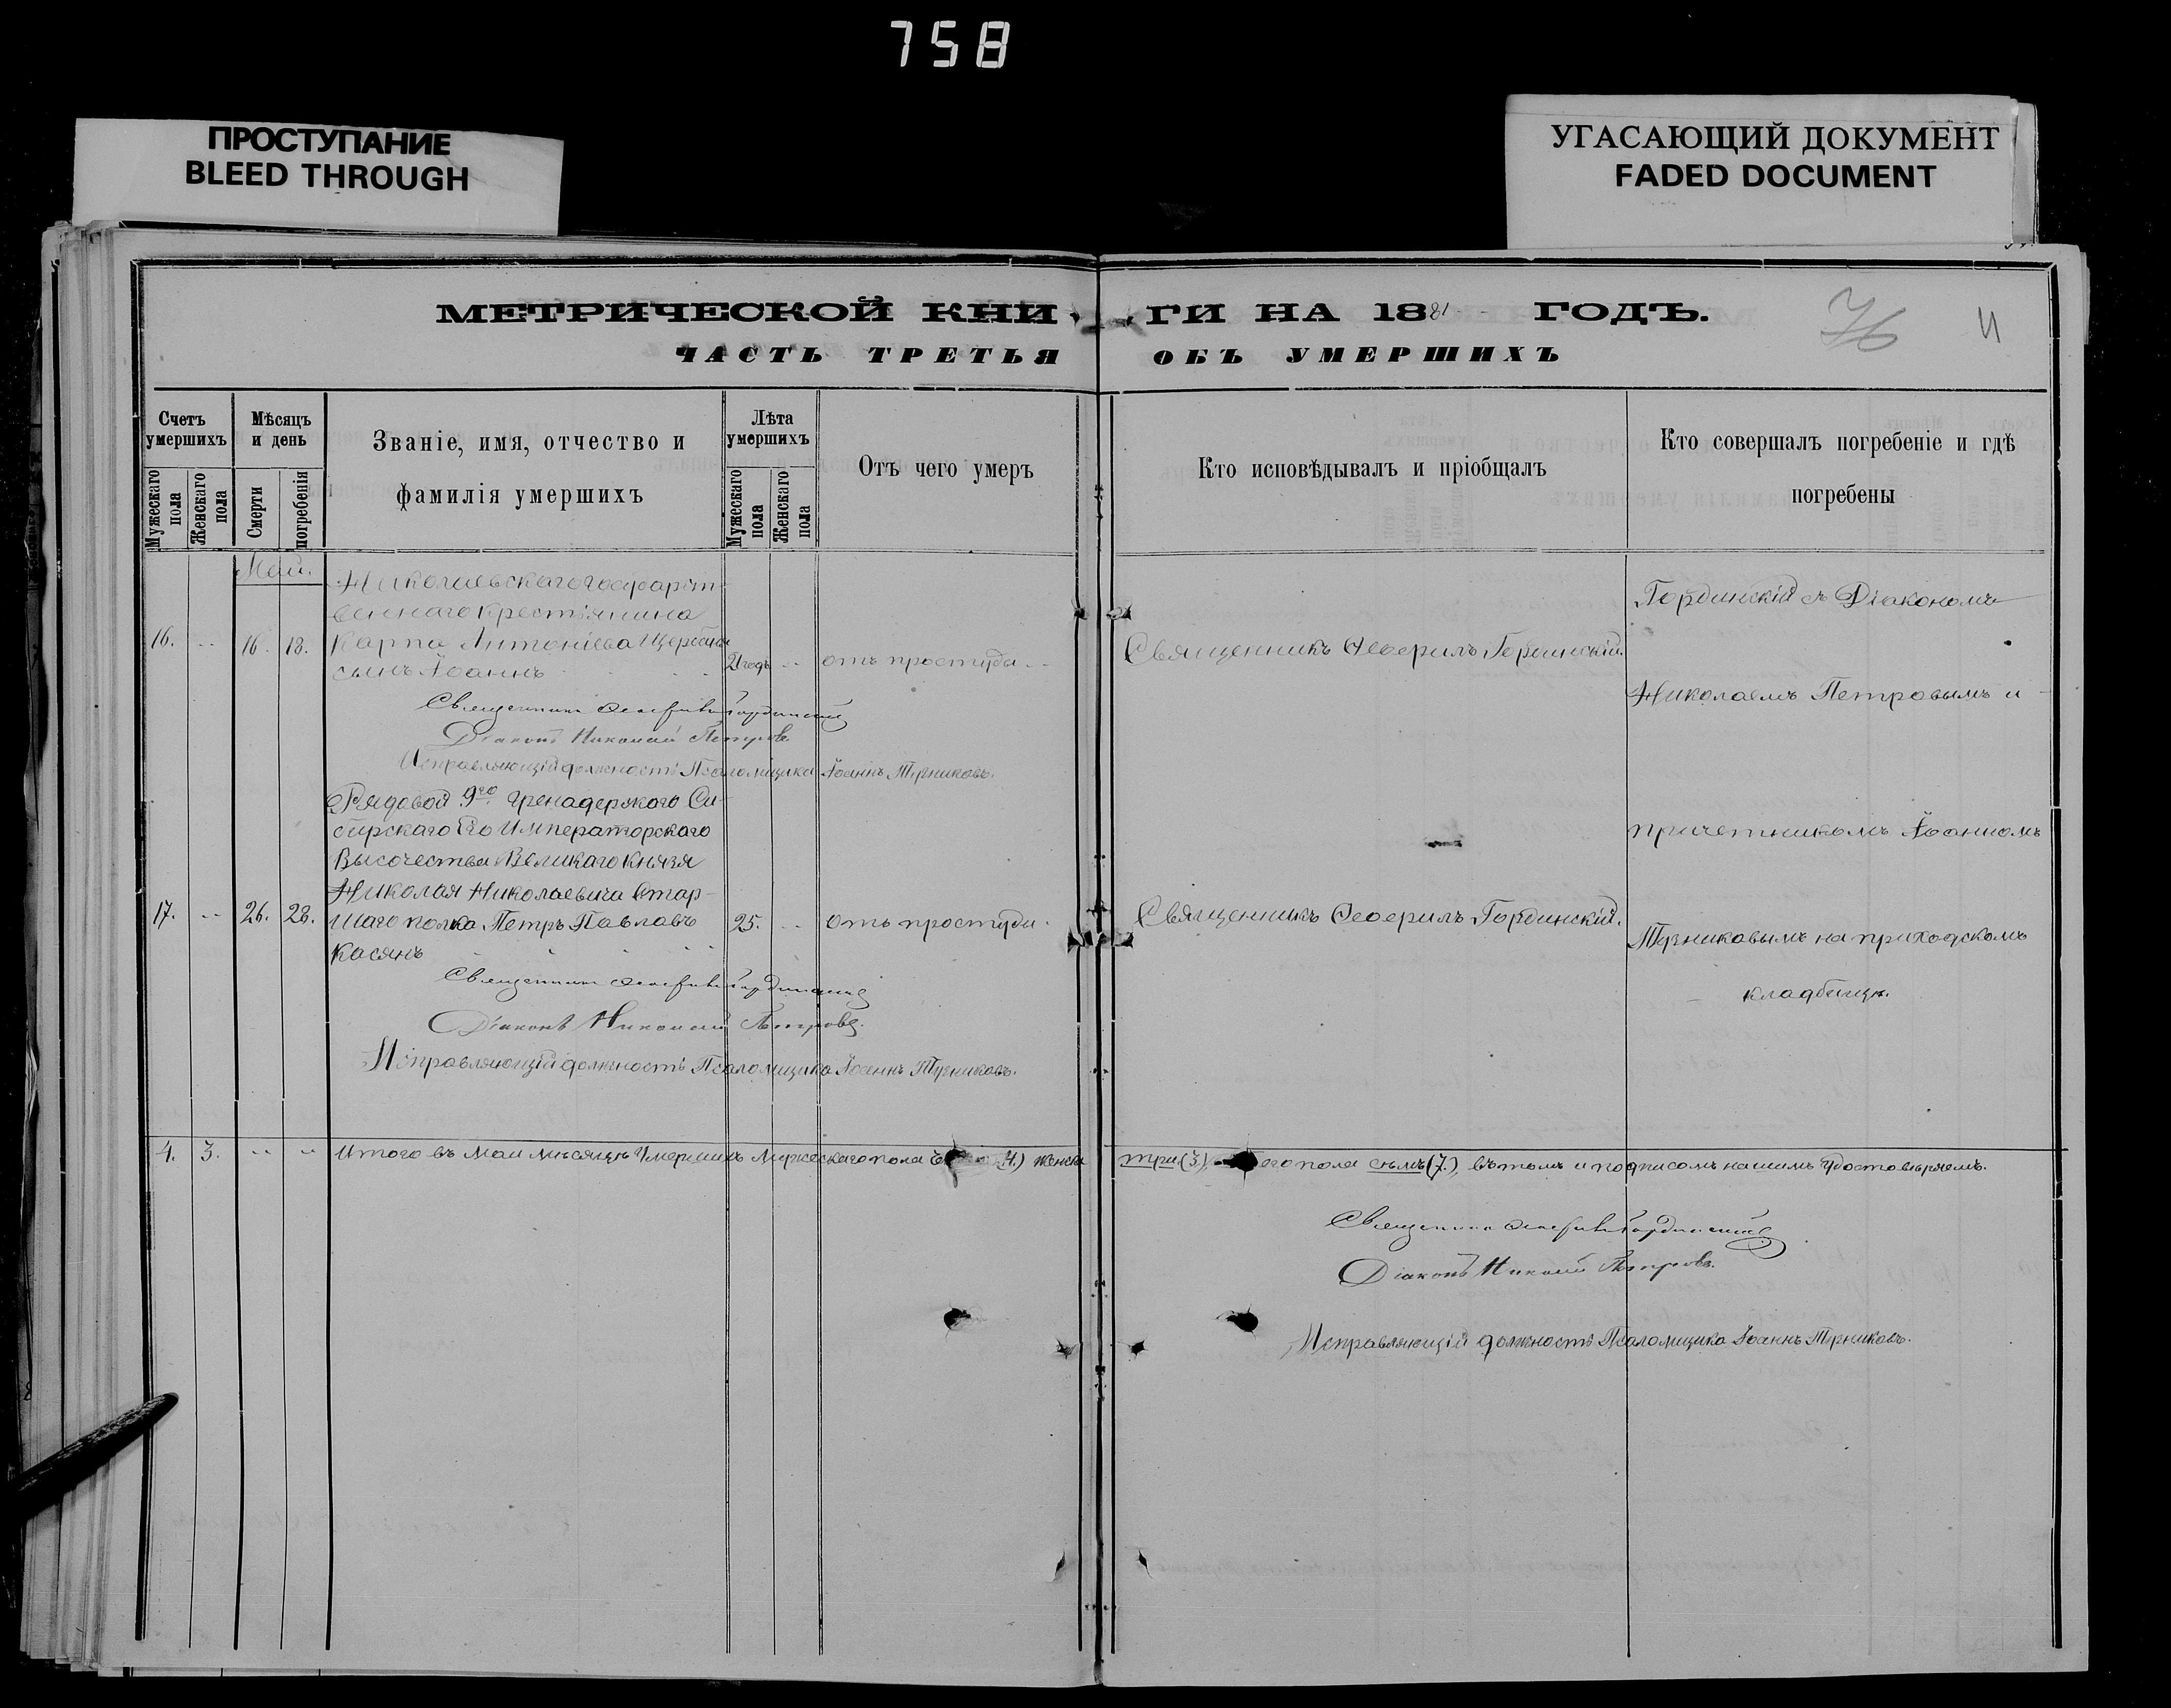 758
ПРОСТУПАНИЕ
BLEED THROUGH
УГАСАЮЩИЙ ДОКУМЕНТ
FADED DOCUMENT
МЕТРИЧЕСКОЙ КНИ ГИ НА 1881 ГОДЪ.
76
ЧАСТЬ ТРЕТЬЯ ОБЪ УМЕРШИХЪ
Счетъ умершихъ
Мужескаго пола
Женскаго пола
Мѣсяцъ и день
Смерти
погребенія
Званіе, имя, отчество и
фамилія умершихъ
Лѣта умершихъ
Мужескаго пола
Женскаго пола
Отъ чего умеръ
Кто исповѣдывалъ и пріобщалъ
Кто совершалъ погребеніе и гдѣ
погребены
Май.
Никольскаго государст-
веннаго крестьянина
16. 16. 18. Карпа Антоніева
сынъ Іоаннъ 2 годъ отъ простуды
Священникъ Гординскій
Гординскій съ Діакономъ
Николаемъ Петровымъ и
Священникъ Гординскій
Діаконъ Николай Петровъ
Исправляющій должность Псаломщика Іоаннъ
Рядовой 9го Гренадерскаго Си-
бирскаго Его Императорскаго
Высочества Великаго Князя
Николая Николаевича Стар-
17. 26. 28. шаго полка Петръ Павлавъ 25. отъ простуды.
Касянъ
Священникъ Гординскій.
причетникомъ Іоанномъ
на приходскомъ
кладбищѣ.
Священникъ Гординскій
Діаконъ Николай Петровъ.
Исправляющій должность Псаломщика Іоаннъ
4. 3. Итого въ Маи мѣсяцѣ Умершихъ Мужескаго пола 4.) женска
три (3.) ого пола сѣмъ (7.), въ томъ и подписомъ нашимъ удостовѣряемъ.
Священникъ Гординскій
Діаконъ Николай Петровъ.
Исправляющій должность Псаломщика Іоаннъ